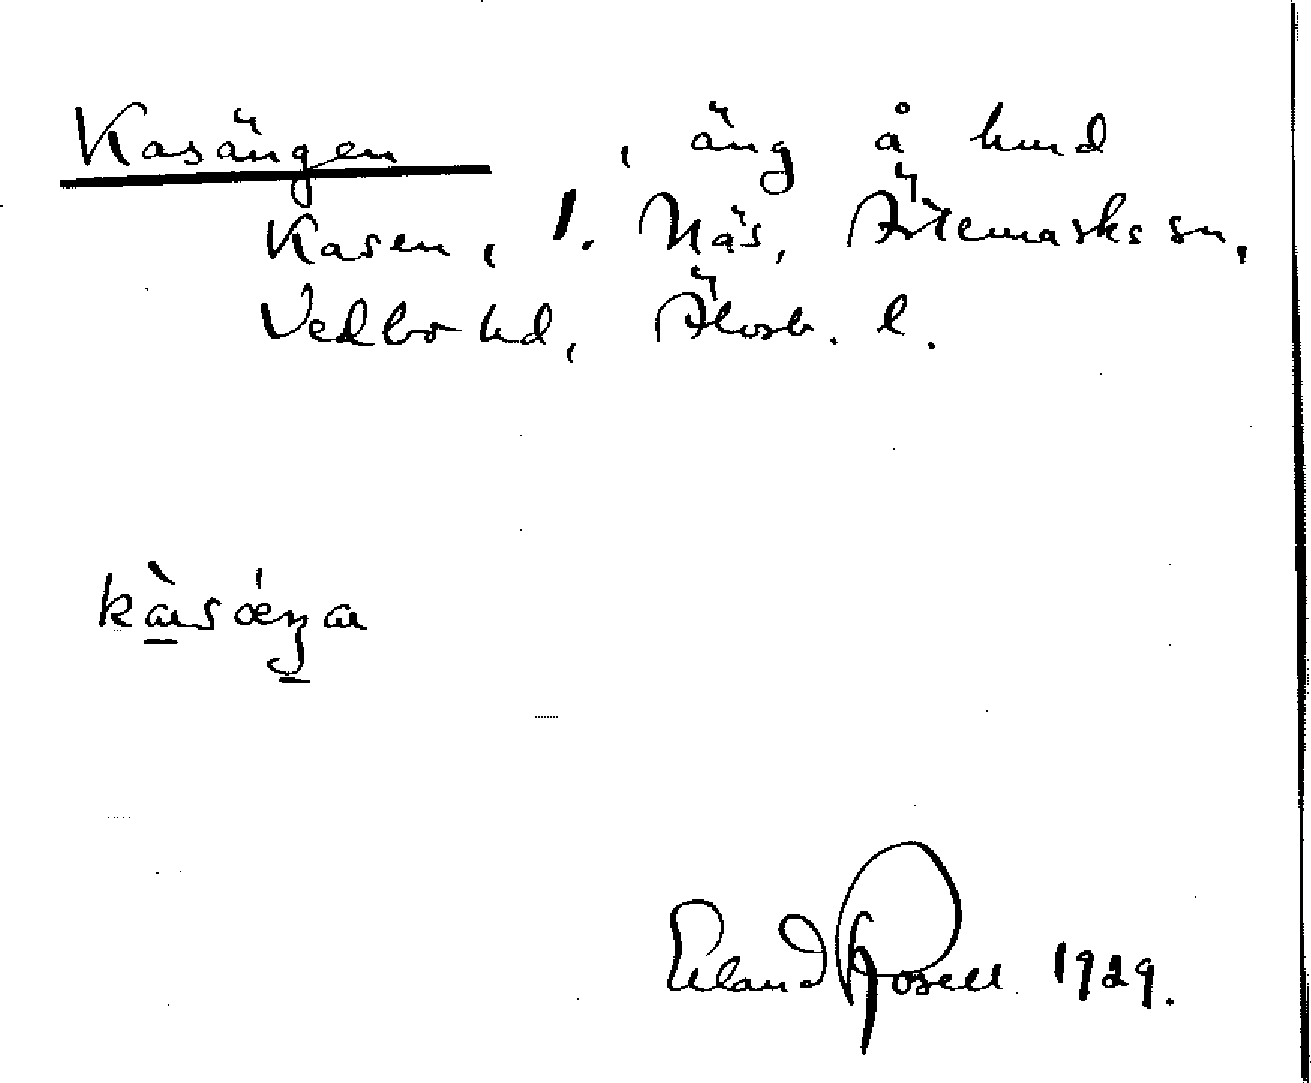 Kasängen, äng å hmd
Kasen, 1. Näs, Ärtemarks sn,
Vedbo hd, Älvsb. l.
kàsǽŋa
Erland Rosell 1929.